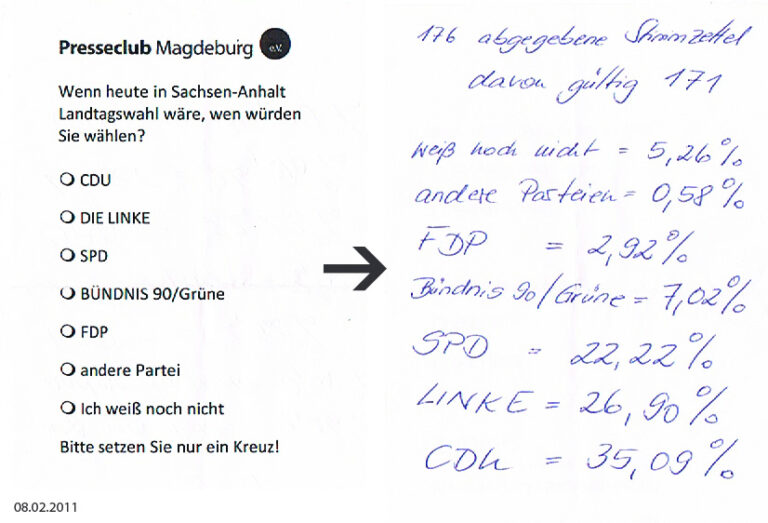 Presseclub Magdeburg e.V.
Wenn heute in Sachsen-Anhalt
Landtagswahl wäre, wen würden
Sie wählen?
CDU
DIE LINKE
SPD
BÜNDNIS 90/Grüne
FDP
andere Partei
Ich weiß noch nicht
Bitte setzen Sie nur ein Kreuz!
08.02.2011
176 abgegebene Stimmzettel
davon gültig 171
weiß noch nicht = 5,26%
andere Parteien = 0,58%
FDP = 2,92%
Bündnis 90/Grüne = 7,02%
SPD = 22,22%
LINKE = 26,90%
CDU = 35,09%